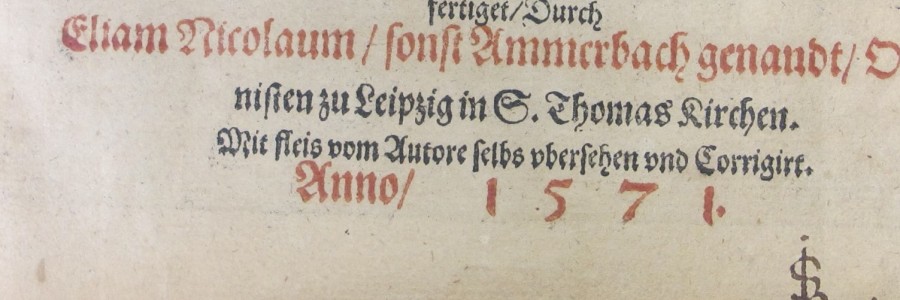 fertiget/Durch
Eliam Nicolaum / sonst Ammerbach genandt/ O
nisten zu Leipzig in S. Thomas Kirchen.
Mit fleis vom Autore selbs vbersehen vnd Corrigirt.
Anno/ 1 5 7 1.